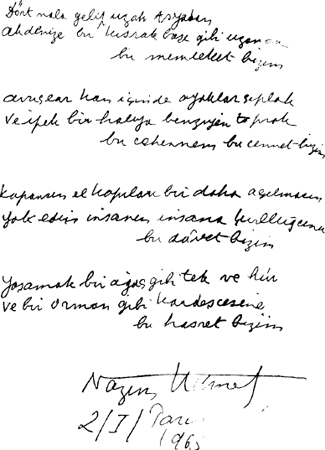 Dört nala gelip uzak Asyadan
Akdenize bir kısrak başı gibi uzanan
bu memleket bizim
kan içinde ayaklar çıplak
ve ipek bir halıya benzeyen toprak
bu cehennem bu cennet bizim
kapansın el kapıları bir daha açılmasın
yok edin insanın insana kulluğunu
bu dâvet bizim
Yaşamak bir ağaç gibi tek ve hür
ve bir orman gibi kardeşcesine
bu hasret bizim
Nazım Hikmet
2/I/